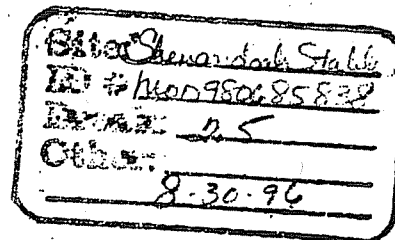 Site: Shenandoah Stable
ID # MOD980685838
Break: 2.5
Other:
8-30-96